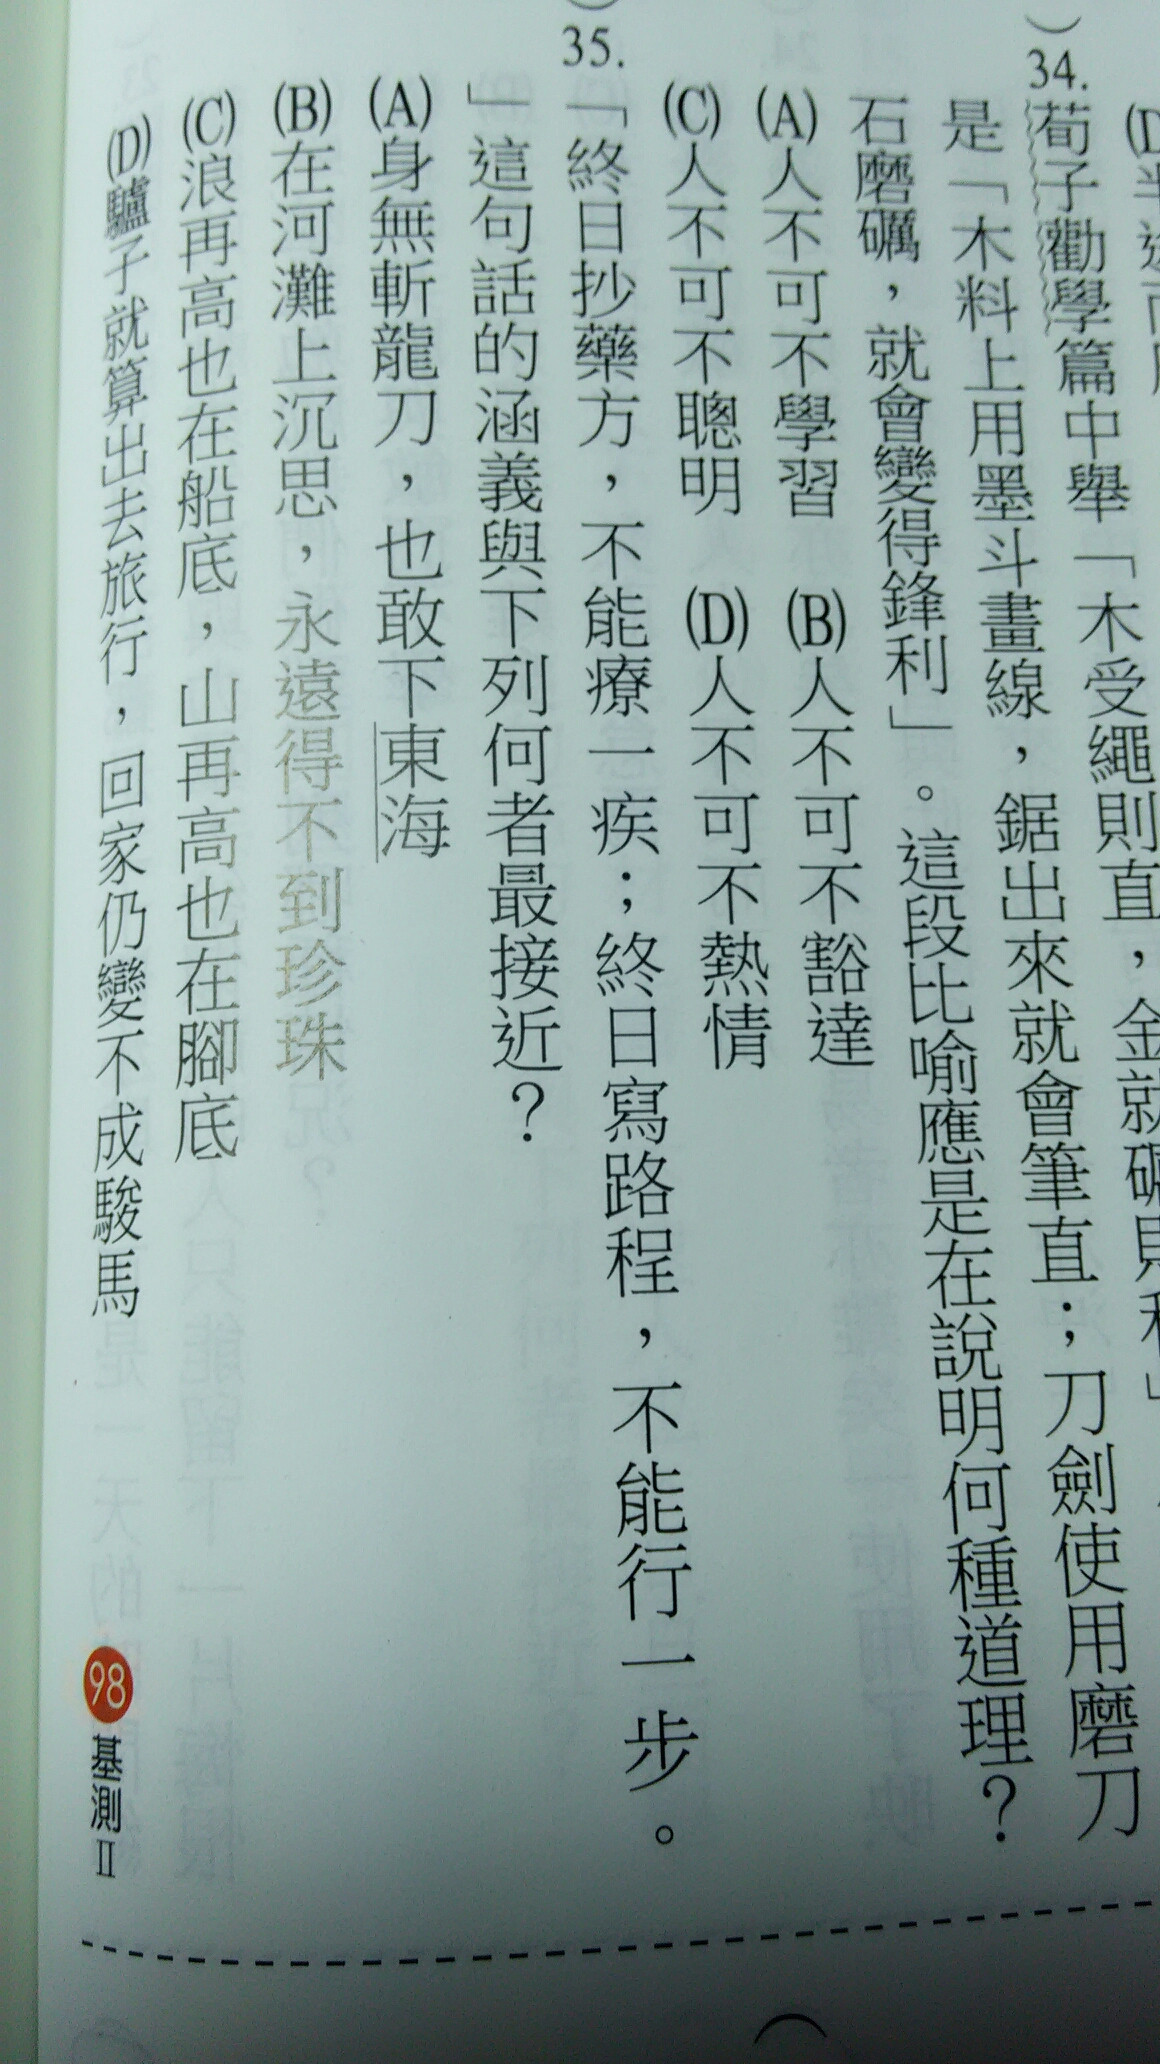 34.荀子勸學篇中舉「木受繩則直,金就礪則利」
是「木料上用墨斗畫線,鋸出來就會筆直;刀劍使用磨刀
石磨礪,就會變得鋒利」。這段比喻應是在說明何種道理?
(A)人不可不學習 (B)人不可不豁達
(C)人不可不聰明 (D)人不可不熱情
35.「終日抄藥方,不能療一疾;終日寫路程,不能行一步。
」這句話的涵義與下列何者最接近?
(A)身無斬龍刀,也敢下東海
(B)在河灘上沉思,永遠得不到珍珠
(C)浪再高也在船底,山再高也在腳底
(D)驢子就算出去旅行,回家仍變不成駿馬
98 基測II